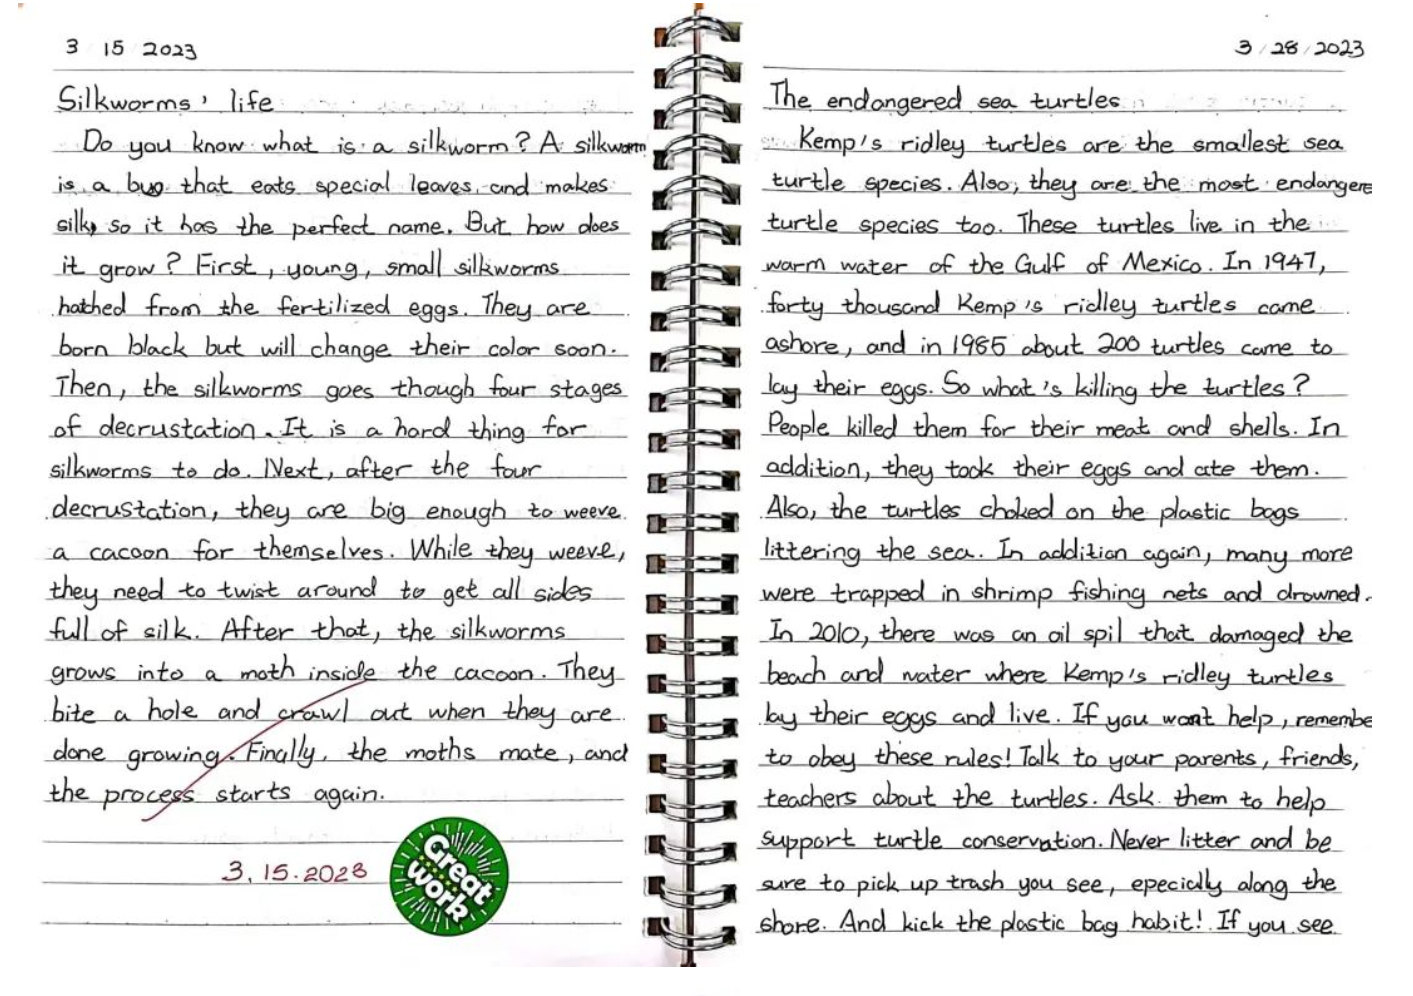 3 / 15 / 2023
Silkworms' life
Do you know what is a silkworm? A silkworm
is a bug that eats special leaves, and makes
silk, so it has the perfect name. But how does
it grow? First, young, small silkworms
hathed from the fertilized eggs. They are
born black but will change their color soon.
Then, the silkworms goes though four stages
of decrustation. It is a hard thing for
silkworms to do. Next, after the four
decrustation, they are big enough to weeve
a cacoon for themselves. While they weeve,
they need to twist around to get all sides
full of silk. After that, the silkworms
grows into a moth inside the cacoon. They
bite a hole and crawl out when they are
done growing. Finally, the moths mate, and
the process starts again.
3.15.2023
Great work
3 / 28 / 2023
The endangered sea turtles
Kemp's ridley turtles are the smallest sea
turtle species. Also, they are the most endangere
turtle species too. These turtles live in the
warm water of the Gulf of Mexico. In 1947,
forty thousand Kemp's ridley turtles came
ashore, and in 1985 about 200 turtles came to
lay their eggs. So what's killing the turtles?
People killed them for their meat and shells. In
addition, they took their eggs and ate them.
Also, the turtles choked on the plastic bags
littering the sea. In addition again, many more
were trapped in shrimp fishing nets and drowned.
In 2010, there was an oil spil that damaged the
beach and water where Kemp's ridley turtles
lay their eggs and live. If you want help, remembe
to obey these rules! Talk to your parents, friends,
teachers about the turtles. Ask them to help
support turtle conservation. Never litter and be
sure to pick up trash you see, epecially along the
shore. And kick the plastic bag habit! If you see